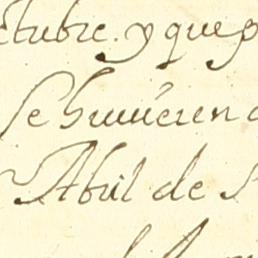 ctubre. y que p
se huuieren
Abril de